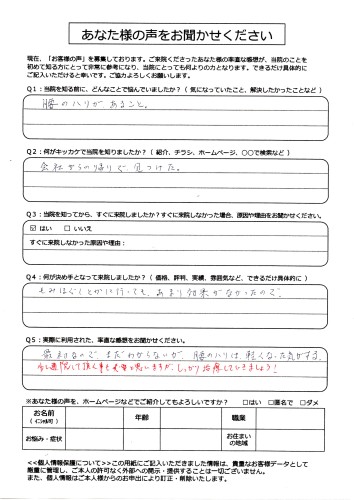 あなた様の声をお聞かせください
現在、「お客様の声」を募集しております。ご来院くださったあなた様の率直な感想が、当院のことを
初めて知る方にとって非常に参考になり、当院にとっても何よりの力となります。できるだけ具体的に
ご記入いただけると幸いです。ご協力よろしくお願いします。
Q1:当院を知る前に、どんなことで悩んでいましたか?( 気になっていたこと、解決したかったことなど )
腰のハリがあること。
Q2:何がキッカケで当院を知りましたか?( 紹介、チラシ、ホームページ、〇〇で検索など )
会社からの帰りで、見つけた。
Q3:当院を知ってから、すぐに来院しましたか?すぐに来院しなかった場合、原因や理由をお聞かせください。
☑ はい □ いいえ
すぐに来院しなかった原因や理由:
Q4:何が決め手となって来院しましたか?( 価格、評判、実績、雰囲気など、できるだけ具体的に )
もみほぐしとかに行っても、あまり効果がなかったので、
Q5:実際に利用された、率直な感想をお聞かせください。
最初なので、まだわからないが、腰のハリは、軽くなった気がする。
大変と思いますが、しっかり治療していきましょう!
※あなた様の声を、ホームページなどでご紹介してもよろしいですか? □はい □匿名で □ダメ
お名前 年齢 職業
(イニシャル可)
お悩み・症状 お住まい
の地域
<<個人情報保護について>>この用紙にご記入いただきました情報は、貴重なお客様データとして
厳重に管理し、ご本人の許可なく外部への開示・提供することは一切ございません。
また、個人情報はご本人様からのお申出により訂正・削除いたします。